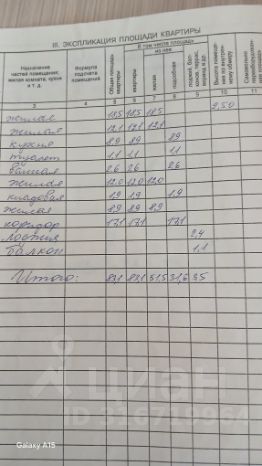 III. ЭКСПЛИКАЦИЯ ПЛОЩАДИ КВАРТИРЫ
Назначение частей помещения: жилая комната, кухня и т. д.
Формула подсчета помещений
Общая площадь квартиры
В том числе площадь
квартиры
из нее
жилая
подсобная
3 4 5 6 7 8 9 10 11
жилая 18,5 18,5 18,5 2,50
жилая 12,1 12,1 12,1
кухня 8,9 8,9 8,9
туалет 1,1 1,1 1,1
ванная 2,6 2,6 2,6
жилая 12,0 12,0 12,0
кладовая 1,9 1,9 1,9
жилая 8,9 8,9 8,9
коридор 17,1 17,1 17,1
лоджия 2,4
балкон 1,1
Итого: 83,1 83,1 51,5 31,6 3,5
циан
Galaxy A15